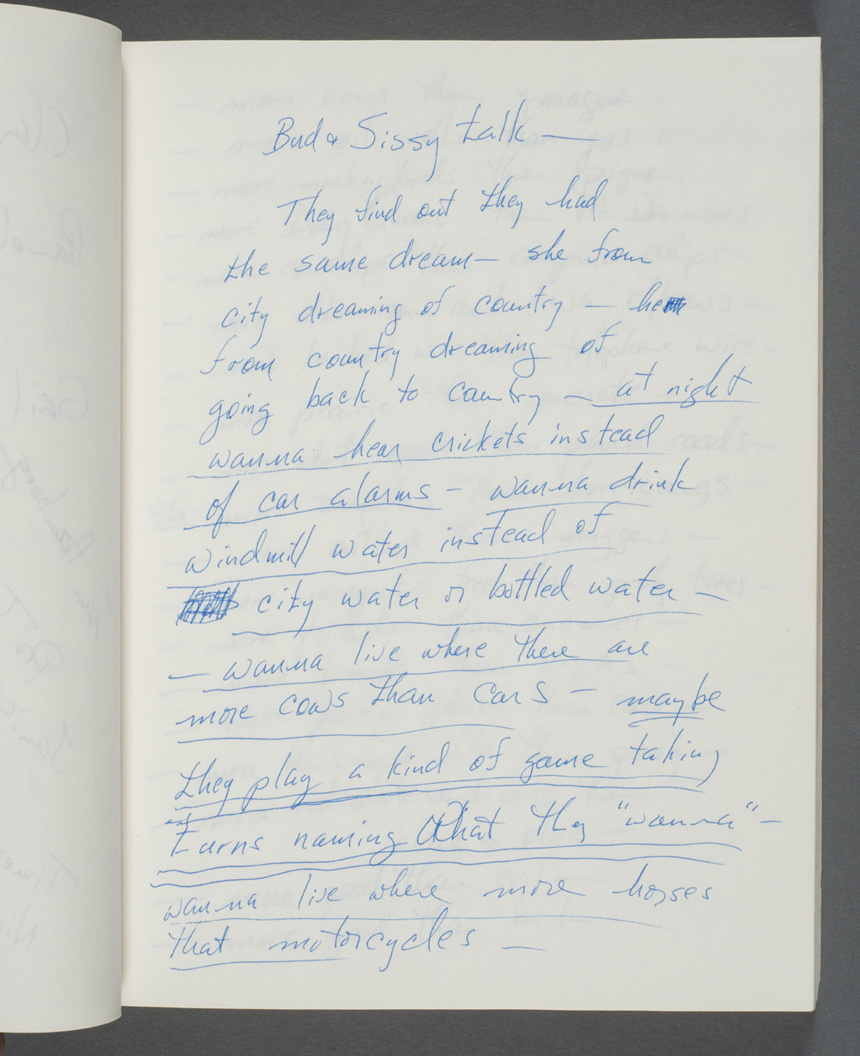 Bud & Sissy talk —
They find out they had
the same dream — she from
city dreaming of country — he
from country dreaming of
going back to country — at night
wanna hear crickets instead
of car alarms — wanna drink
windmill water instead of
city water or bottled water —
— wanna live where there are
more cows than cars — maybe
they play a kind of game taking
turns naming what they "wanna" —
wanna live where more horses
that motorcycles —